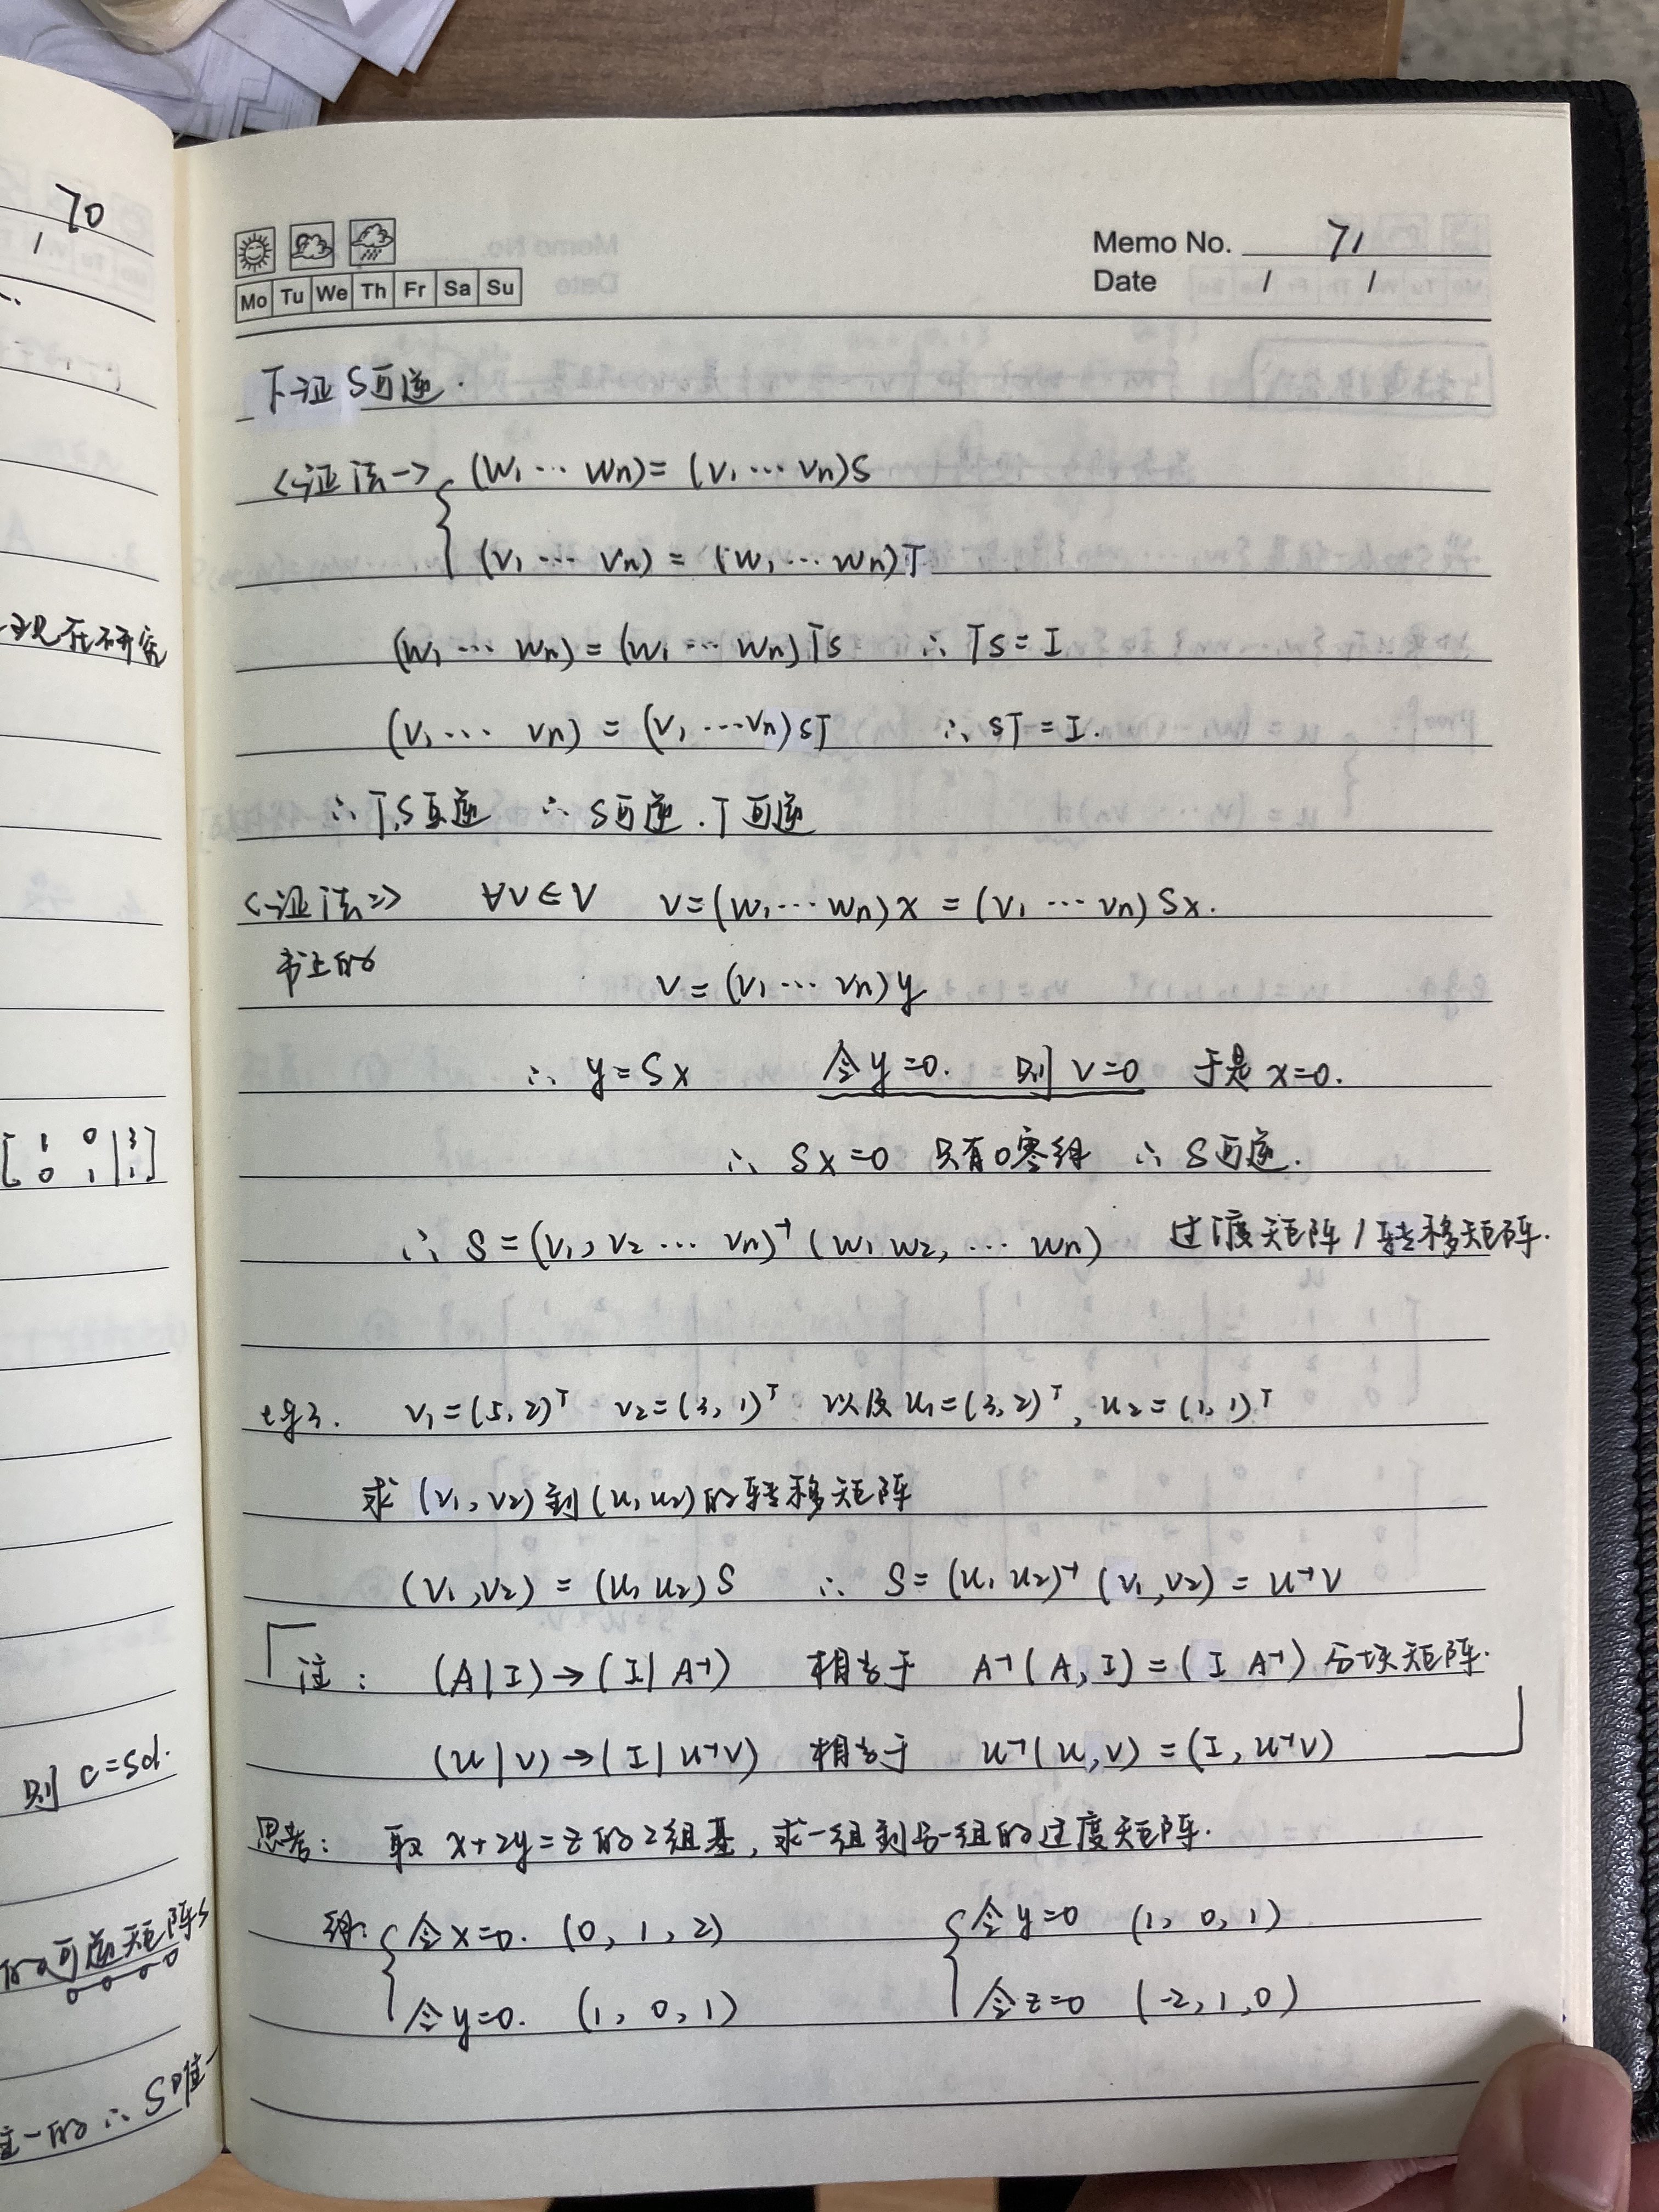 70
/
现在研究
[ 1 0 | 3
0 1 | 1 ]
则 c=Sd.
的可逆矩阵S
唯一的 ∴ S唯一
Memo No. 71
Mo Tu We Th Fr Sa Su
Date / /
下证 S可逆.
<证法一> { (w₁ ⋯ wn) = (v₁ ⋯ vn)S
(v₁ ⋯ vn) = (w₁ ⋯ wn)T
(w₁ ⋯ wn) = (w₁ ⋯ wn)TS ∴ TS = I
(v₁ ⋯ vn) = (v₁ ⋯ vn)ST ∴ ST = I.
∴ T,S互逆 ∴ S可逆. T可逆
<证法二> ∀v∈V v=(w₁ ⋯ wn)x = (v₁ ⋯ vn)Sx.
书上的
v=(v₁ ⋯ vn)y
∴ y=Sx 令y=0. 则 v=0 于是 x=0.
∴ Sx=0 只有0零解 ∴ S可逆.
∴ S=(v₁, v₂ ⋯ vn)⁻¹(w₁ w₂, ⋯ wn) 过渡矩阵/转移矩阵.
eg3. v₁=(5,2)ᵀ v₂=(3,1)ᵀ 以及 u₁=(3,2)ᵀ, u₂=(1,1)ᵀ
求(v₁,v₂)到(u₁ u₂)的转移矩阵
(v₁,v₂) = (u₁ u₂)S ∴ S=(u₁ u₂)⁻¹(v₁,v₂) = U⁻¹V
注: (A|I)→(I|A⁻¹) 相当于 A⁻¹(A,I)=(I A⁻¹) 分块矩阵.
(U|V)→(I|U⁻¹V) 相当于 U⁻¹(U,V)=(I,U⁻¹V)
思考: 取 x+2y=z的2组基,求一组到另一组的过度矩阵.
解: { 令x=0. (0,1,2) { 令y=0 (1,0,1)
令y=0. (1,0,1) 令z=0 (-2,1,0)